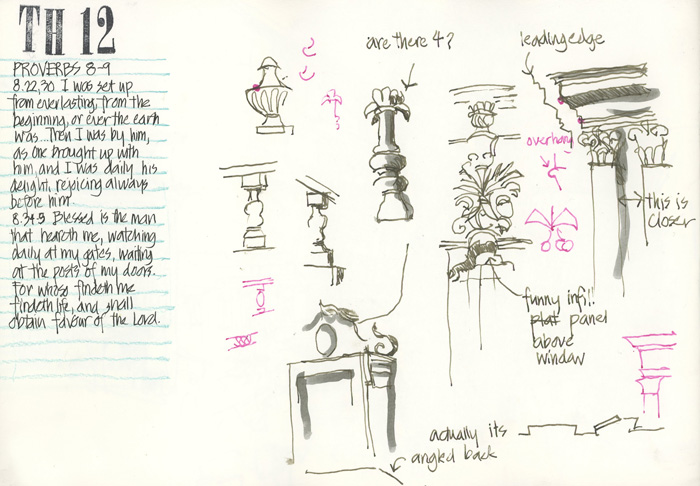 TH 12
PROVERBS 8-9
8.22,30 I was set up
from everlasting, from the
beginning, or ever the earth
was... Then I was by him,
as one brought up with
him, and I was daily his
delight, rejoicing always
before him.
8.34-5 Blessed is the man
that heareth me, watching
daily at my gates, waiting
at the posts of my doors.
For whoso findeth me
findeth life, and shall
obtain favour of the Lord.
are there 4?
leading edge
overhang
this is
closer
funny infill
flat panel
above
window
actually its
angled back